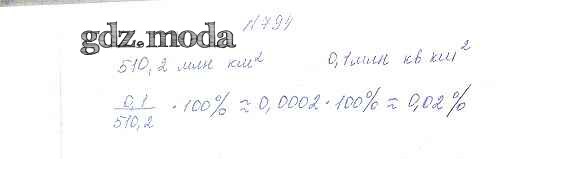 N794
gdz.moda
510,2 млн км² 0,1 млн кв км²
0,1/510,2 · 100% ≈ 0,0002 · 100% ≈ 0,02%